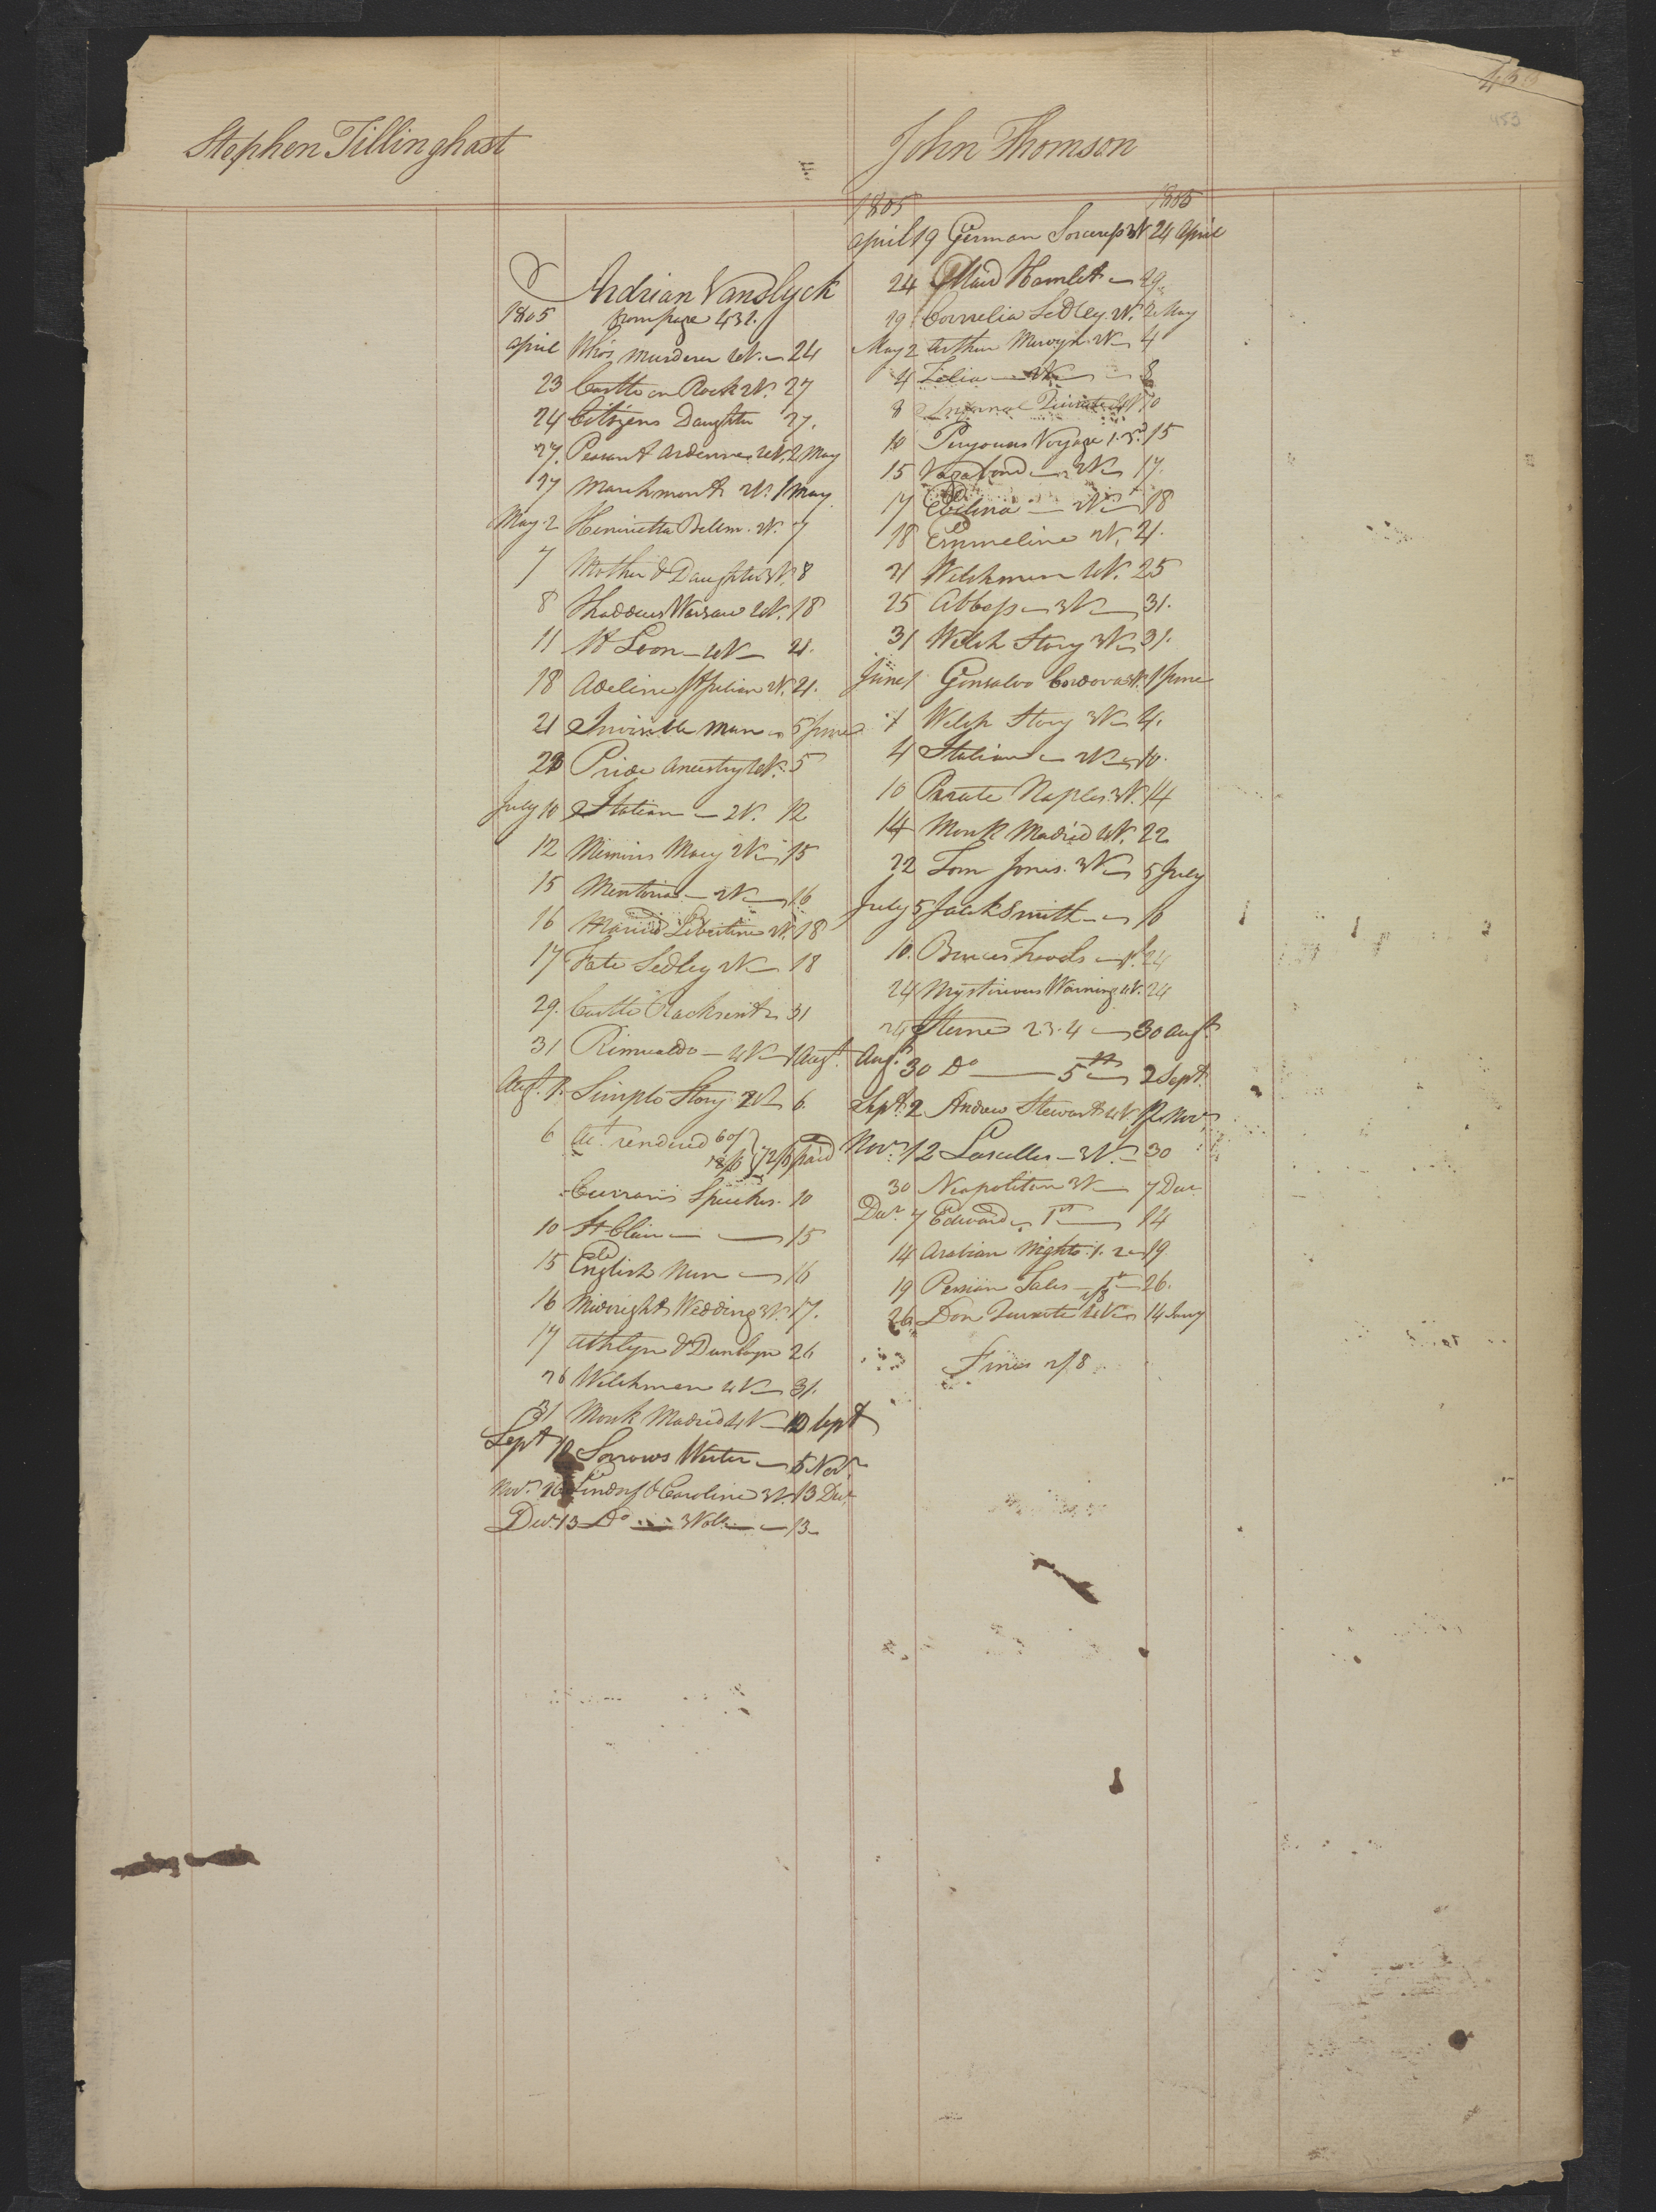 453
Stephen Tillinghast
Adrian Vanslyck
1805 from page 431.
April Who's Murderer 4V. 24
23 Castle on Rock 2V. 27
24 Citizens Daughter 27.
27. Peasant Ardennes 4V. 2 May
27 Marchmont 2V. 1 May
May 2 Henrietta Bellm. 2V. 7
7 Mother & Daughter 3V. 8
8 Thaddeus Warsaw 4V. 18
11 St Leon — 4V — 21.
18 Adeline St Julian 2V. 21.
21 Invisible Man — 5 June
22 Pride Ancestry 4V. 5
July 10 Italian — 2V. 12
12 Memoirs Mary 2V — 15
15 Mentoria — 2V — 16
16 Married Libertine 2V. 18
17 Fate Sedley 2V — 18
29. Castle Rackrent — 31
31 Rimualdo — 4V — 1 Augt.
Augt. 1. Simple Story 2V 6.
6 Act. rendered 60/ 12/6 72/6 paid
Currans Speeches. 10
10 St Clair — — 15
15 English Nun — 16
16 Midnight Wedding 3V. 17.
17 Athlyn & Duncayn 26
26 Welchmen 4V — 31.
31 Monk Madrid 4V — 10 Sept
Sept 10 Sorrows Werter — 5 Novr.
Novr. 26 Lindorf & Caroline 3V. 13 Decr.
Decr. 13 Do — 3 Vols — 13
John Thomson
1805 1805
April 19 German Sorceress 3V 24 April
24 Maid Hamlet — 29
29 Cornelia Sedley 2V. 2 May
May 2 Arthur Mervyn 2V — 4
4 Zelia — 2V — 8
8 Infernal Quixote 4V 10
10 Peryouses Voyage 1. 3d. 15
15 Vagabond — 2V — 17.
17 Evelina — 2V — 18
18 Emmeline 2V. 21.
21 Welchmen 4V. 25
25 Abbess — 3V — 31.
31 Welch Story 3V — 31.
June 1 Gonsalvo Cordova 3V. 1 June
1 Welch Story 3V — 4.
4 Italian — 2V — 10.
10 Pirate Naples 3V. 14
14 Monk Madrid 4V. 22
22 Tom Jones. 3V — 5 July
July 5 Jack Smith — 10
10. Bruces Travels — 24
24 Mysterious Warning 4V. 24
24 Sterne 2 3. 4 — 30 Augt.
Augt. 30 Do — 5th — 2 Sept.
Sept. 2 Andrew Stewart 4V 12 Novr
Novr. 12 Lascelles — 3V. — 30
30 Neapolitan 3V — 7 Decr
Decr. 7 Edward — 1st — 14
14 Arabian Nights. 1. 2 — 19
19 Persian Tales — 1st — 26.
26 Don Quixote 4V — 14 Jany
Fines 2/8